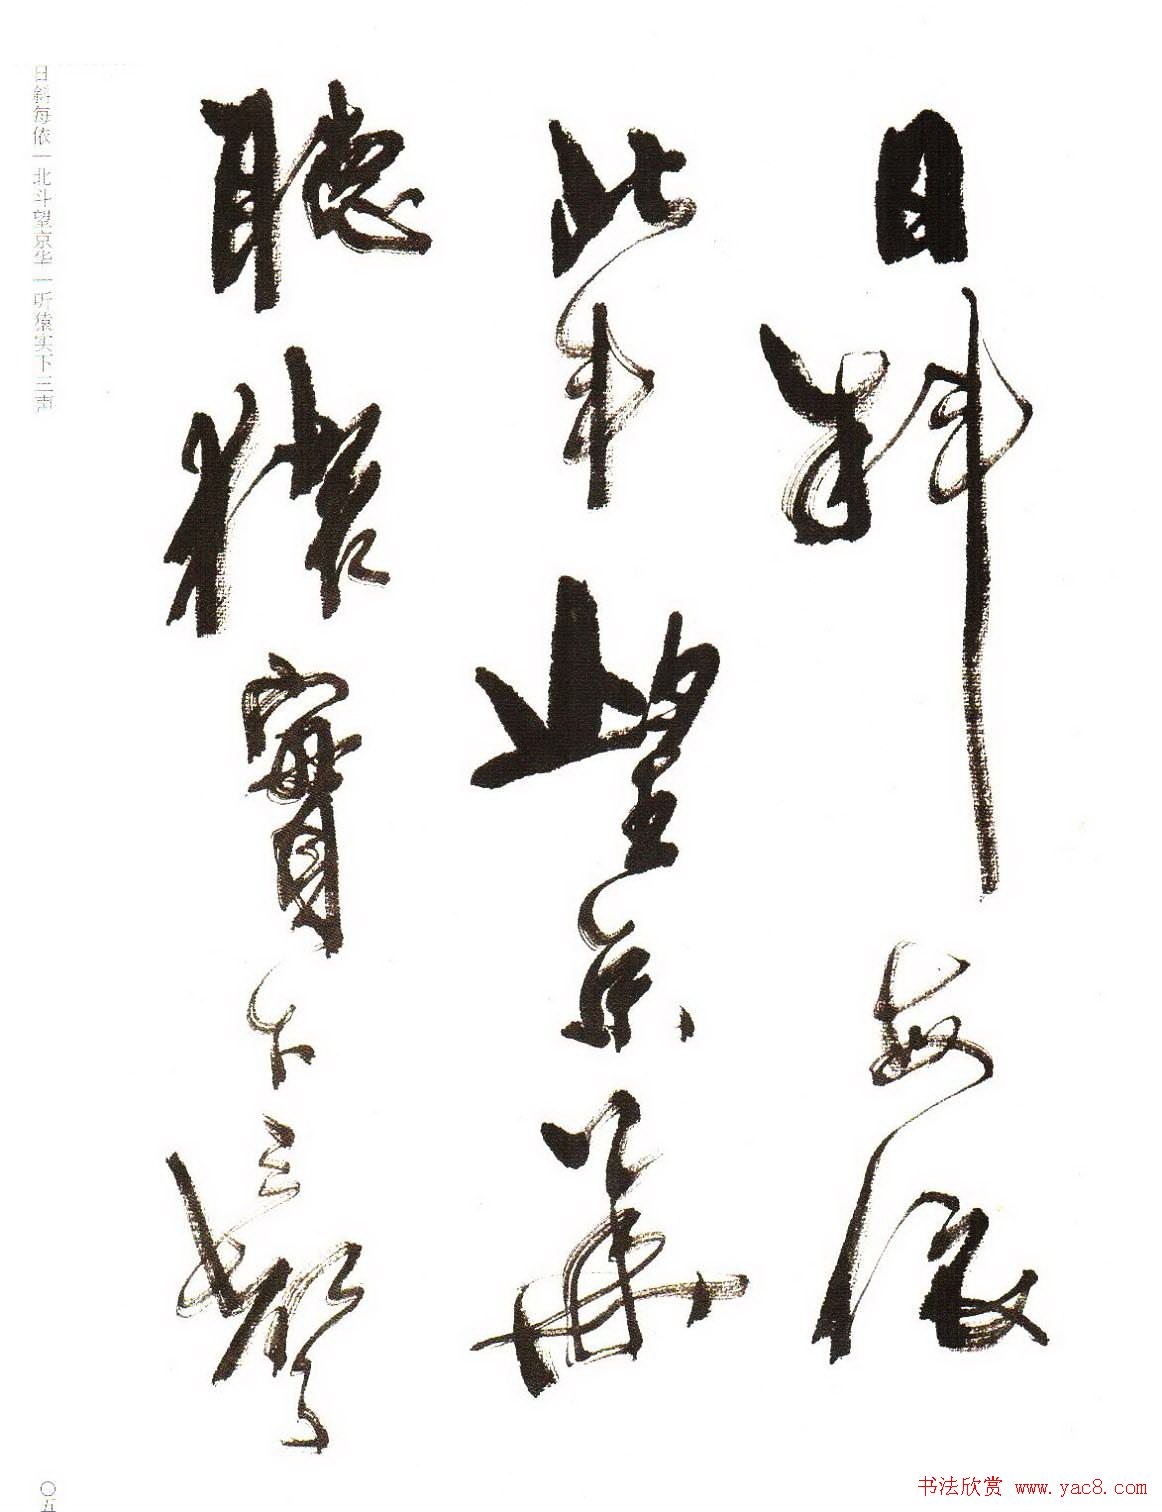 日斜每依
北斗望京華
聽猿實下三聲
日斜每依一北斗望京华一听猿实下三声
〇五
书法欣赏 www.yac8.com